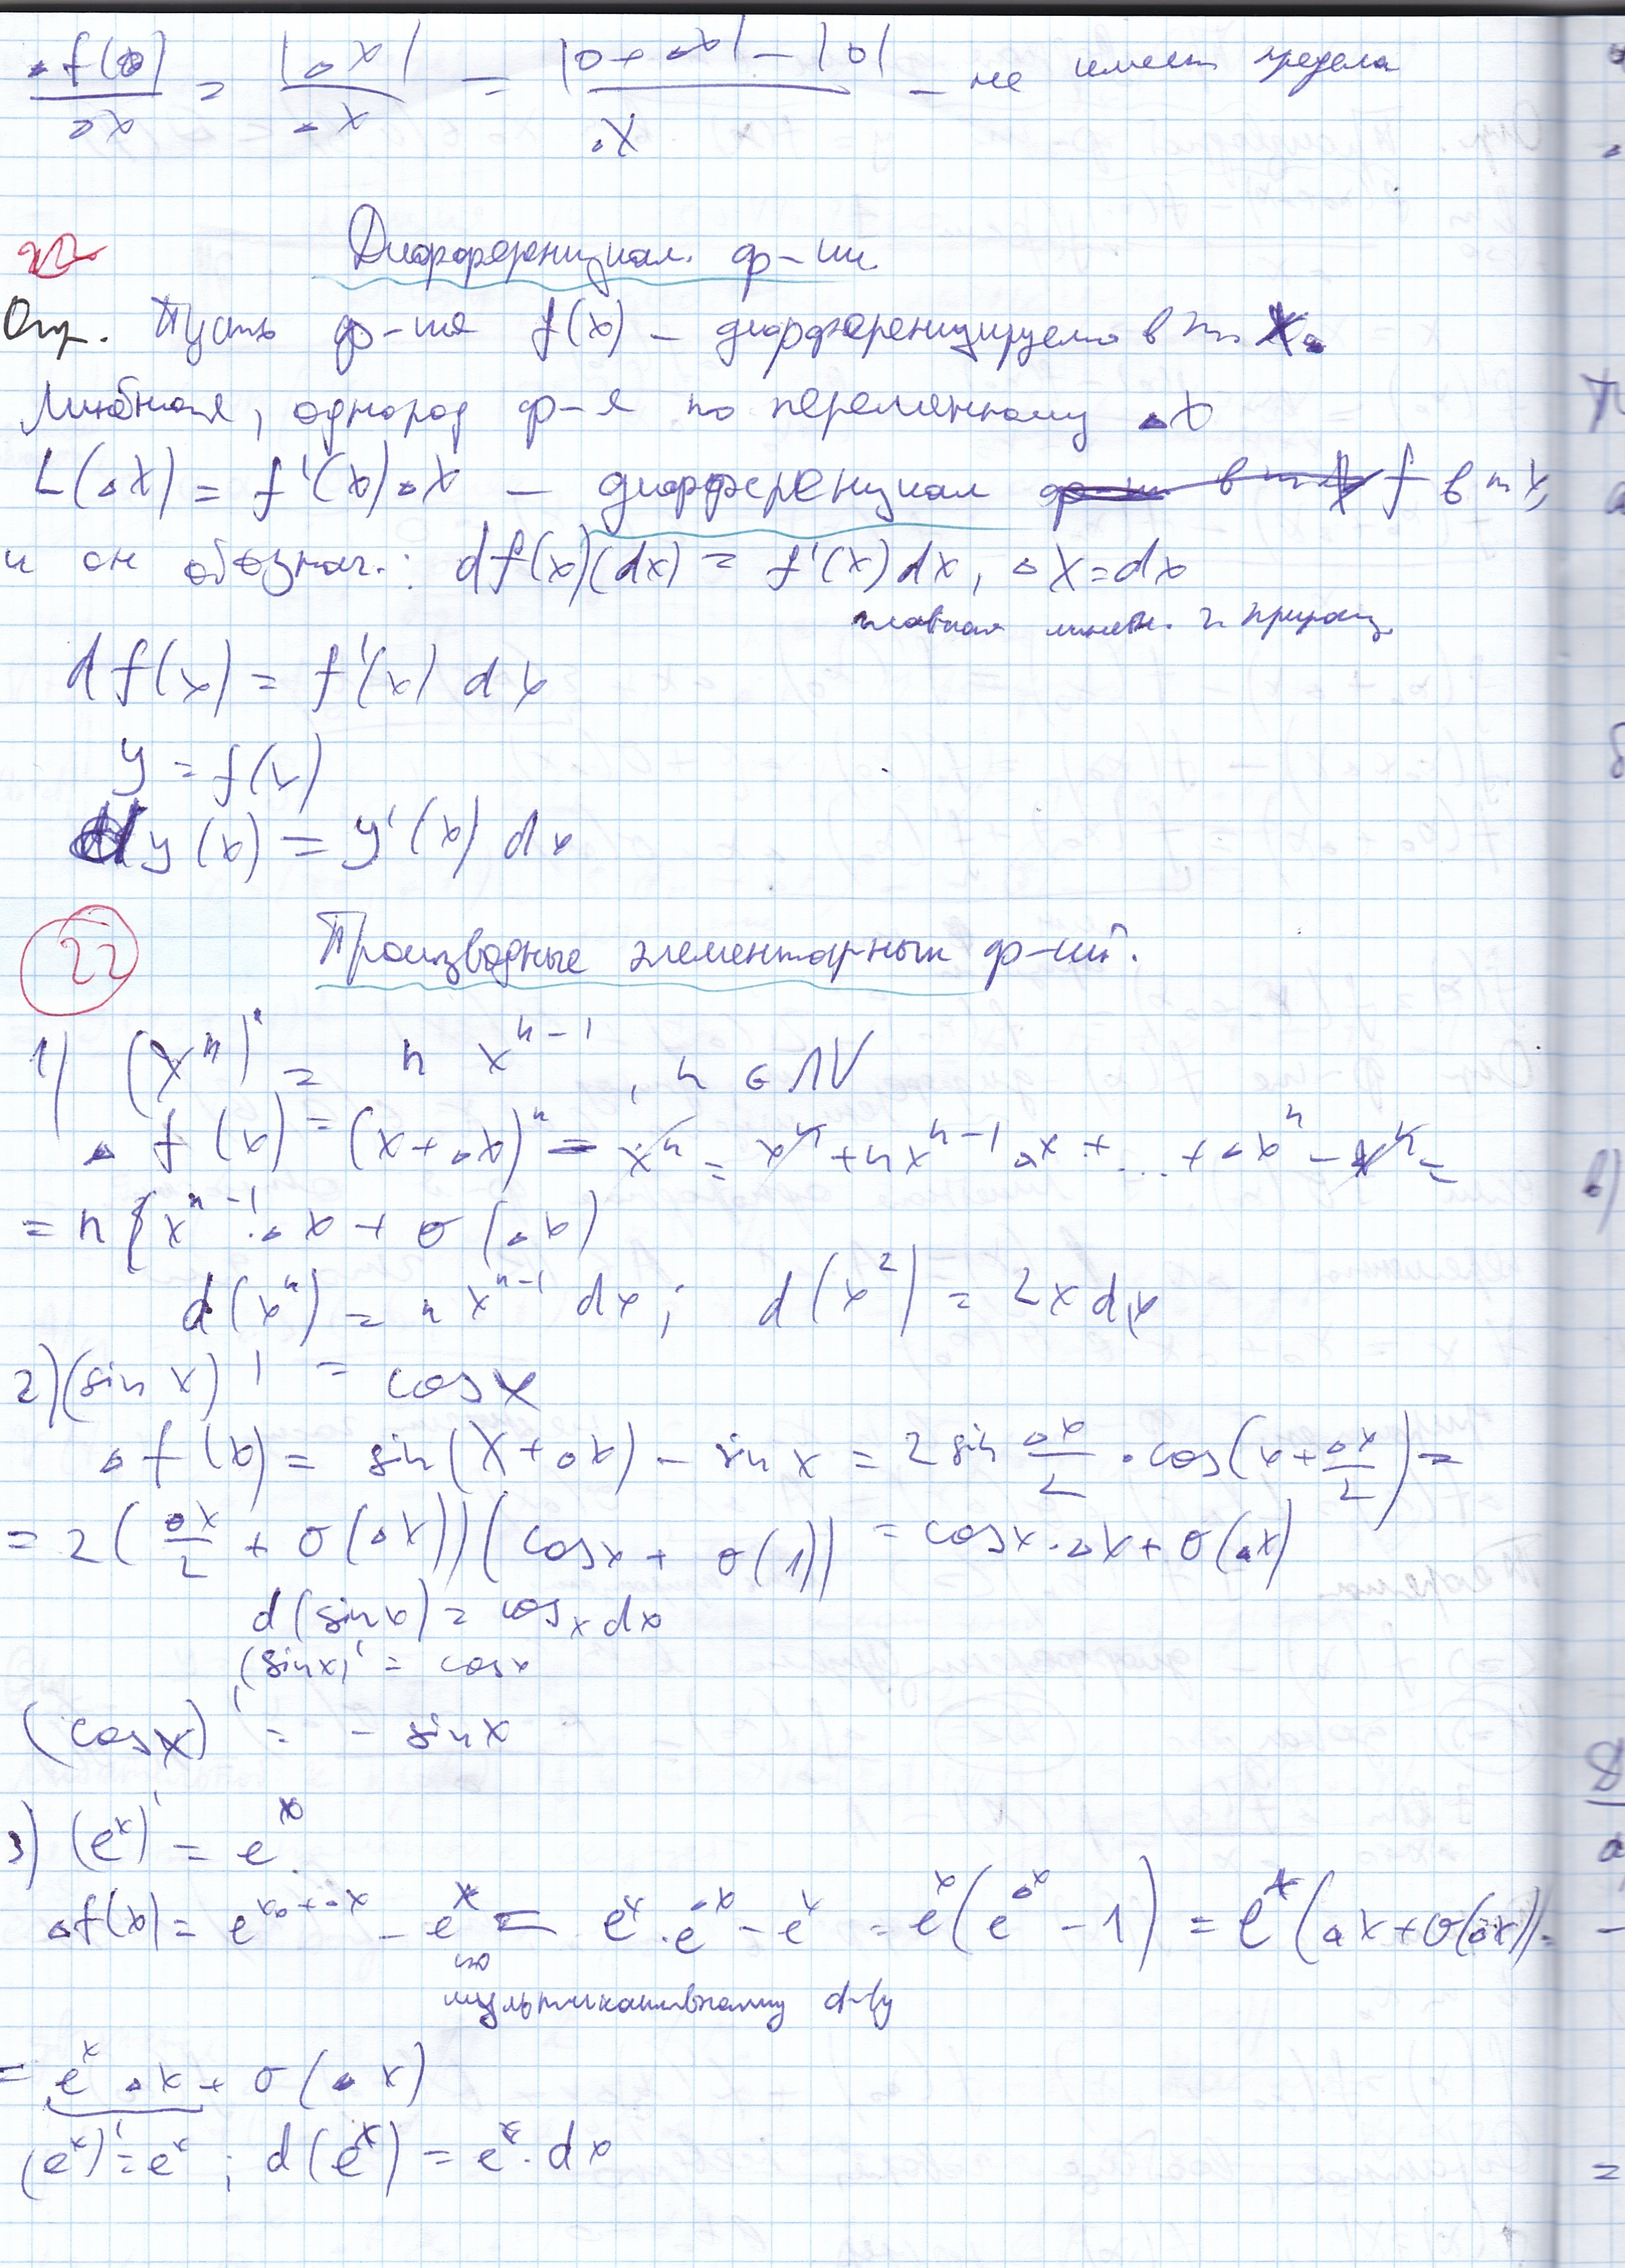 Δf(0)/Δx = |Δx|/Δx = (|0+Δx| - |0|)/Δx - не имеет предела
Дифференциал ф-ии
Опр. Пусть ф-ия f(x) - дифференцируема в т. x.
Линейная, однород ф-я по переменному Δx
L(Δx) = f'(x)Δx - дифференциал f в т x,
и он обознач.: df(x)(dx) = f'(x)dx, Δx=dx
главная линейн. ч. приращ.
df(x) = f'(x) dx
y = f(x)
dy(x) = y'(x) dx
22 Производные элементарных ф-ий.
1) (x^n)' = n x^{n-1}, n ∈ N
Δf(x) = (x+Δx)^n - x^n = x^n + nx^{n-1}Δx + ... + Δx^n - x^n =
= n x^{n-1}·Δx + o(Δx)
d(x^n) = n x^{n-1} dx; d(x^2) = 2x dx
2) (sin x)' = cos x
Δf(x) = sin(x+Δx) - sin x = 2 sin Δx/2 · cos(x+Δx/2) =
= 2(Δx/2 + o(Δx))(cos x + o(1)) = cos x·Δx + o(Δx)
d(sin x) = cos x dx
(sin x)' = cos x
(cos x)' = - sin x
3) (e^x)' = e^x.
Δf(x) = e^{x_0+Δx} - e^x = e^x·e^{Δx} - e^x = e^x(e^{Δx} - 1) = e^x(Δx + o(Δx)) =
по
= e^x Δx + o(Δx)
(e^x)' = e^x; d(e^x) = e^x·dx